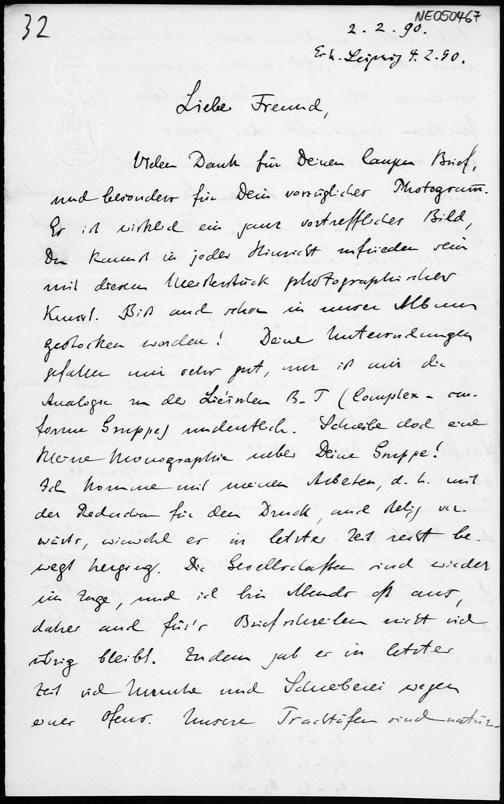 32
NE050467
2. 2. 90.
Erh. Leipzig 4. 2. 90.
Lieber Freund,
Vielen Dank für Deinen langen Brief,
und besonders für Dein vorzügliches Photogramm.
Es ist wirklich ein ganz vortreffliches Bild,
Du kannst in jeder Hinsicht zufrieden sein
mit diesem Meisterstück photographischer
Kunst. Bist auch schon in unser Album
gestocken worden! Deine Untersuchungen
gefallen mir sehr gut, nur ist mir die
Analogie zu der Lieschen B-T (Complex - con-
forme Gruppe) undeutlich. Schreibe doch eine
kleine Monographie ueber Deine Gruppe!
Ich komme mit meinen Arbeiten, d. h. mit
der Redaction für den Druck, auch stetig vor-
wärts, wiewohl es in letzter Zeit recht be-
wegt herging. Die Gesellschaften sind wieder
im Zuge, und ich bin Abends oft aus,
daher auch für's Briefschreiben nicht viel
übrig bleibt. Zudem gab es in letzter
Zeit viel Unruhe und Schreiberei wegen
eines Ofens. Unsere sind natür-